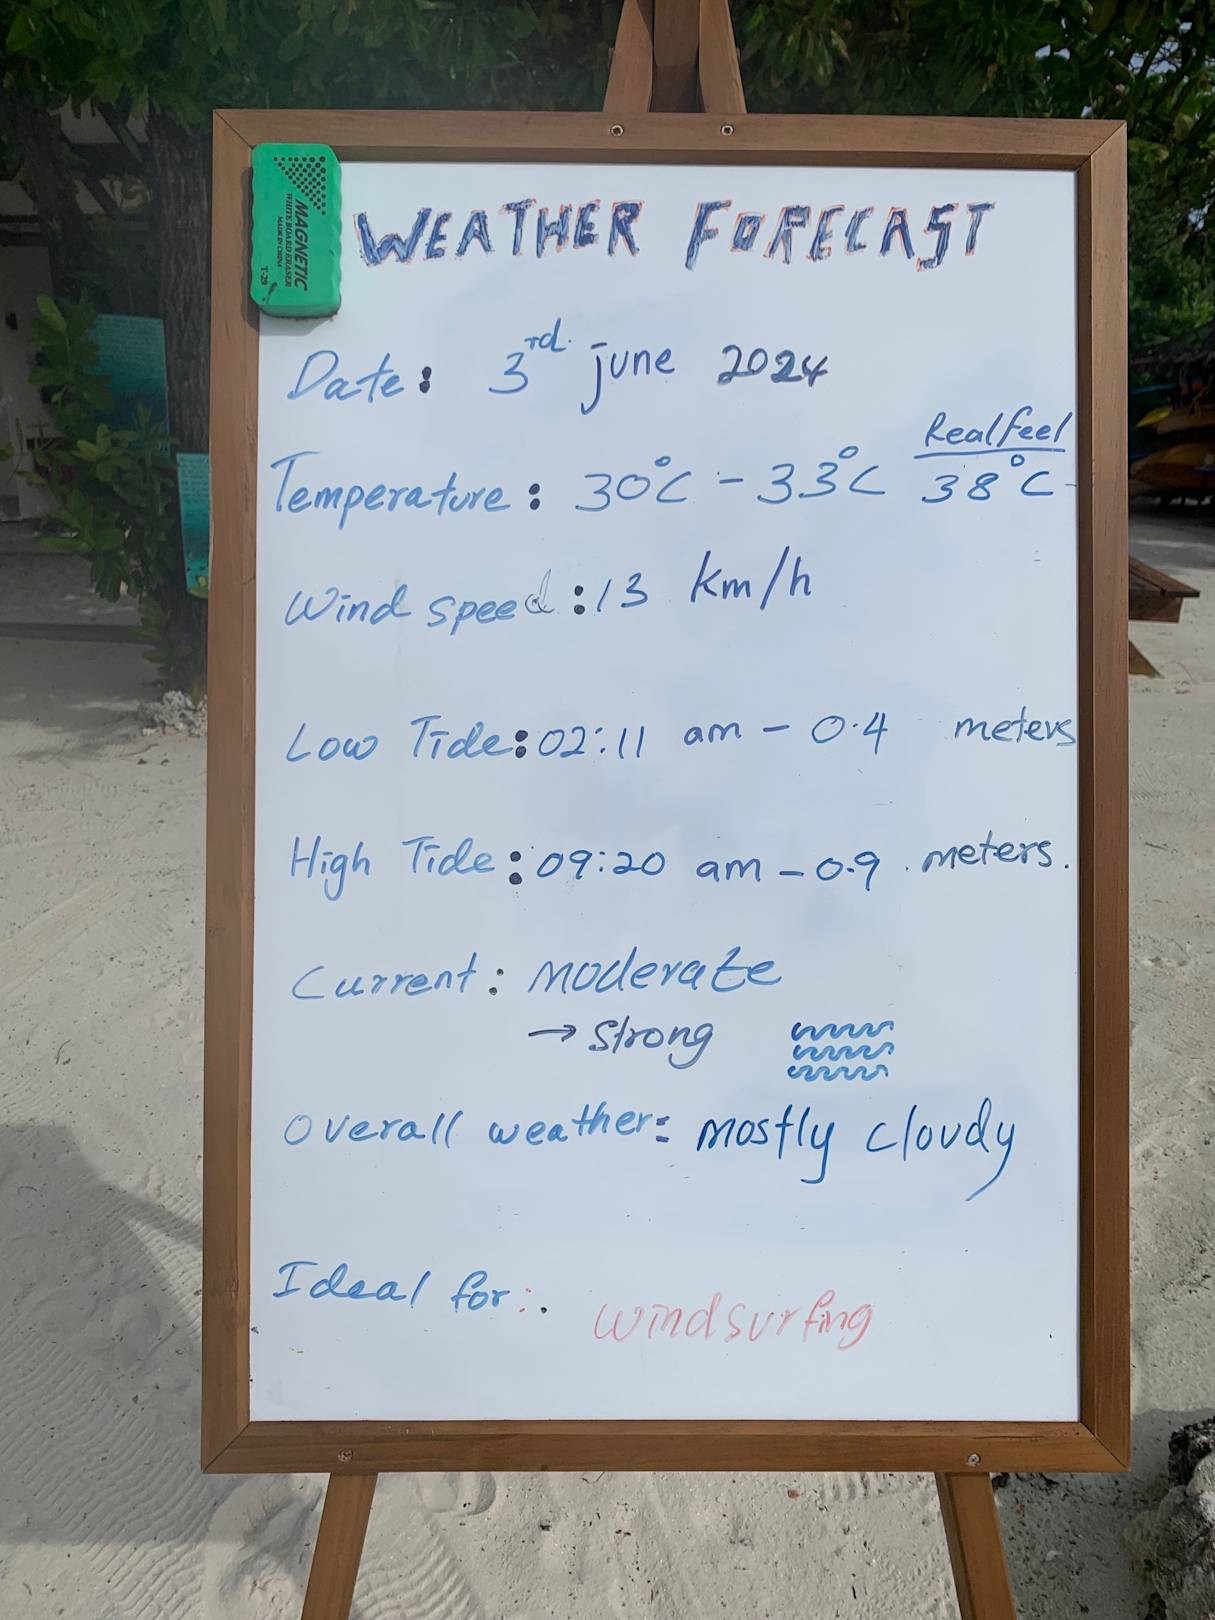 MAGNETIC
WHITE BOARD ERASER
MADE IN CHINA
T-29
WEATHER FORECAST
Date: 3rd. june 2024
Temperature: 30°C - 33°C Realfeel
38°C
Wind speed: 13 km/h
Low Tide: 02:11 am - 0.4 meters
High Tide: 09:20 am - 0.9 meters.
Current: moderate
→ strong
Overall weather: mostly cloudy
Ideal for: windsurfing